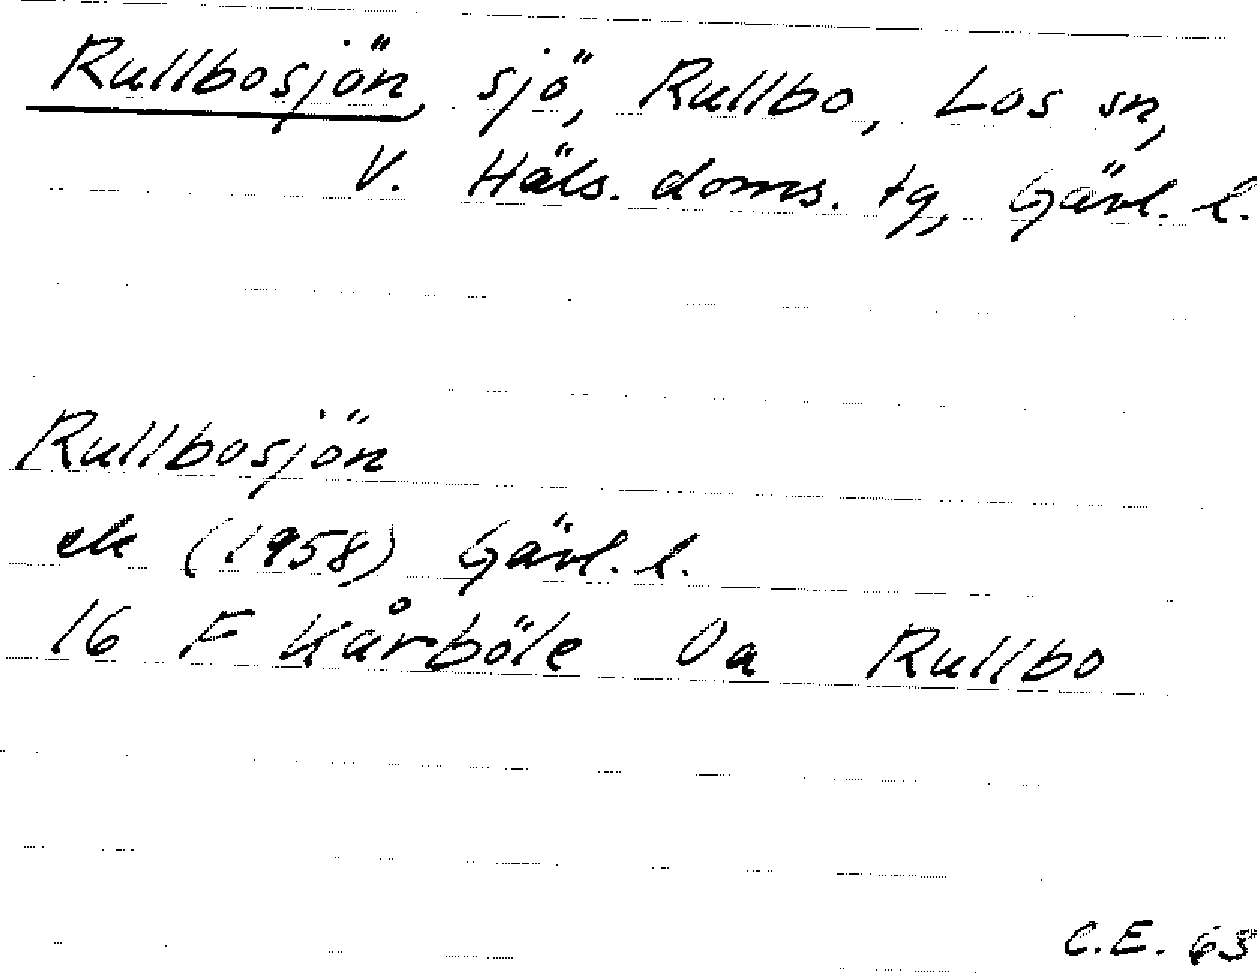 Rullbosjön, sjö, Rullbo, Los sn,
V. Häls. doms. tg, Gävl. l.
Rullbosjön
ek (1958) Gävl. l.
16 F Kårböle 0a Rullbo
C.E. 65